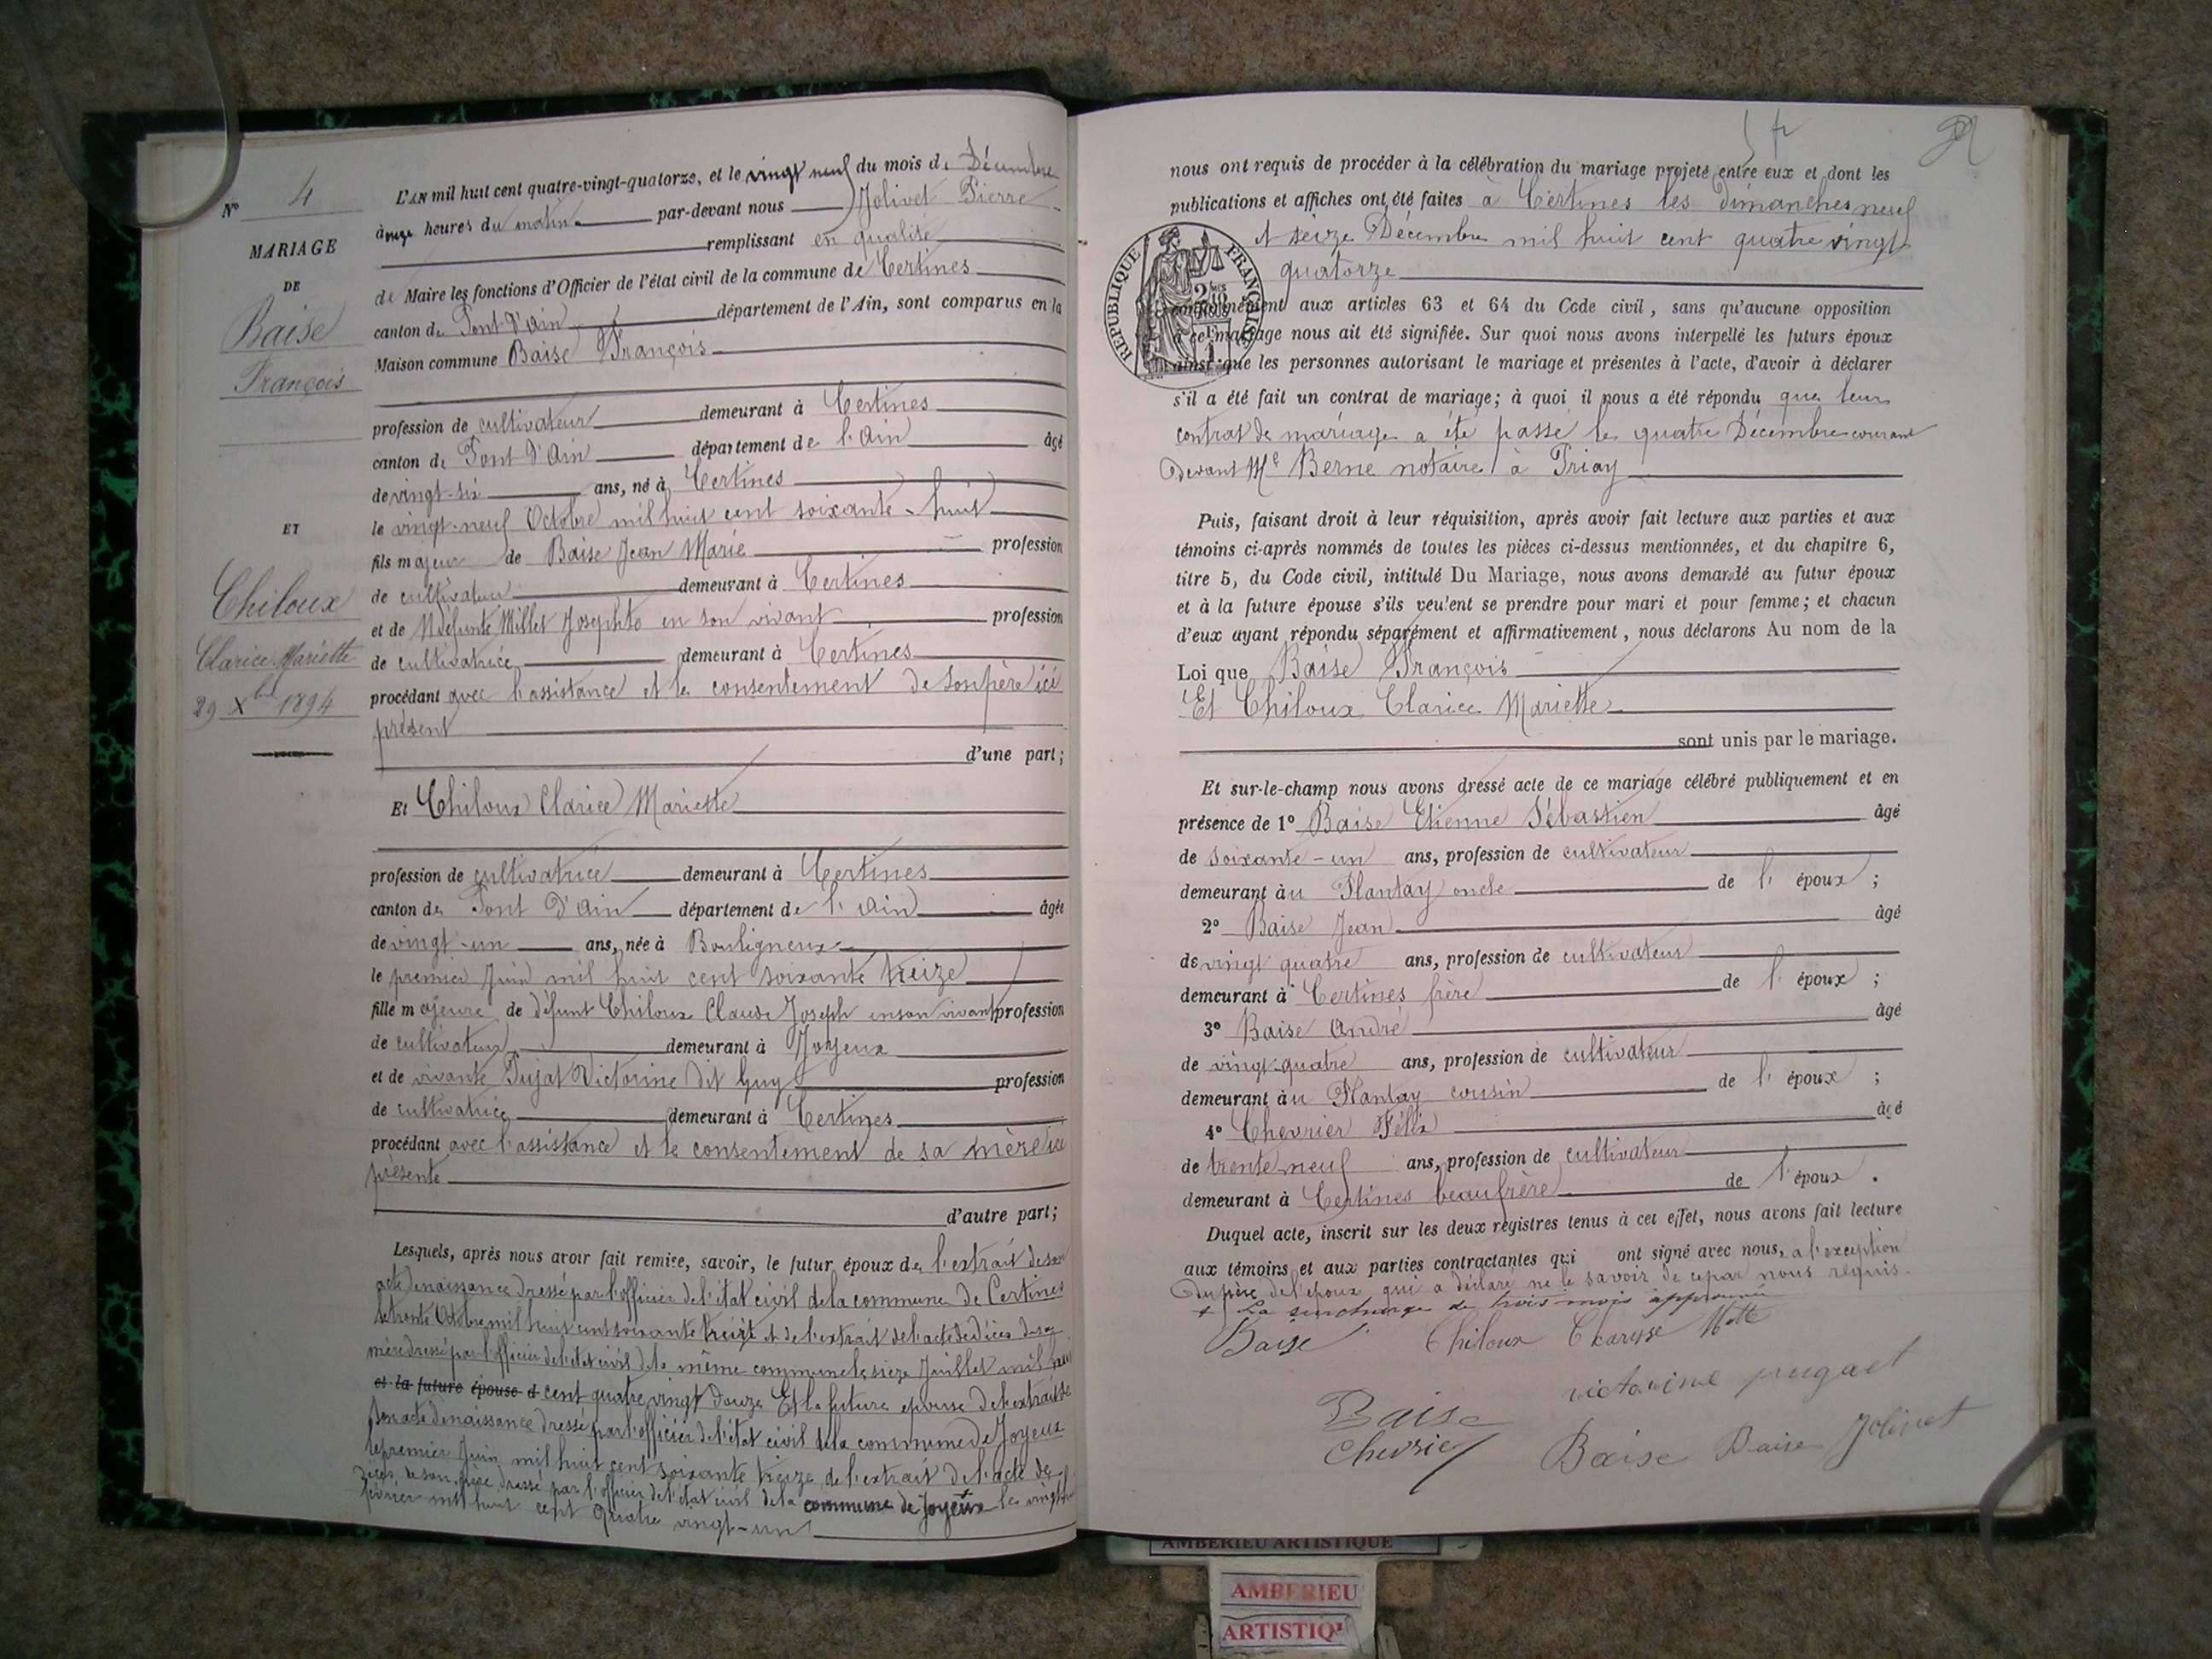 N° 4
MARIAGE
DE
Baise
François
ET
Chiloux
Clarice Mariette
29 Xbre 1894
L'AN mil huit cent quatre-vingt-quatorze, et le vingt neuf du mois de Décembre
à onze heures du matin par-devant nous Jolivet Pierre
remplissant en qualité
de Maire les fonctions d'Officier de l'état civil de la commune de Certines
canton de Pont d'Ain département de l'Ain, sont comparus en la
Maison commune Baise François
profession de cultivateur demeurant à Certines
canton de Pont d'Ain département de l'Ain âgé
de vingt-six ans, né à Certines
le vingt-neuf Octobre mil huit cent soixante-huit
fils majeur de Baise Jean Marie profession
de cultivateur demeurant à Certines
et de défunte Millet Josephte en son vivant profession
de cultivatrice demeurant à Certines
procédant avec l'assistance et le consentement de son père ici
présent
d'une part;
Et Chiloux Clarice Mariette
profession de cultivatrice demeurant à Certines
canton de Pont d'Ain département de l'Ain âgée
de vingt-un ans, née à Bouligneux
le premier Juin mil huit cent soixante treize
fille majeure de défunt Chiloux Claude Joseph en son vivant profession
de cultivateur demeurant à Joyeux
et de vivante Pujat Victorine dit Guy profession
de cultivatrice demeurant à Certines
procédant avec l'assistance et le consentement de sa mère ici
présente
d'autre part;
Lesquels, après nous avoir fait remise, savoir, le futur époux de l'extrait de son
acte de naissance dressé par l'officier de l'état civil de la commune de Certines
le trente Octobre mil huit cent soixante et de l'extrait de l'acte de décès de sa
mère dressé par l'officier de l'état civil de la même commune le seize Juillet mil huit
et la future épouse d cent quatre vingt douze Et la future épouse de l'extrait de
son acte de naissance dressé par l'officier de l'état civil de la commune de Joyeux
le premier Juin mil huit cent soixante treize de l'extrait de l'acte de
décès de son père dressé par l'officier de l'état civil de la commune de Joyeux le vingt
février mil huit cent quatre vingt-un
nous ont requis de procéder à la célébration du mariage projeté entre eux et dont les
publications et affiches ont été faites à Certines les dimanches neuf
et seize Décembre mil huit cent quatre vingt
quatorze
RÉPUBLIQUE FRANÇAISE
conformément aux articles 63 et 64 du Code civil, sans qu'aucune opposition
à ce mariage nous ait été signifiée. Sur quoi nous avons interpellé les futurs époux
ainsi que les personnes autorisant le mariage et présentes à l'acte, d'avoir à déclarer
s'il a été fait un contrat de mariage; à quoi il nous a été répondu que leur
contrat de mariage a été passé le quatre Décembre courant
devant Me Berne notaire à Priay
Puis, faisant droit à leur réquisition, après avoir fait lecture aux parties et aux
témoins ci-après nommés de toutes les pièces ci-dessus mentionnées, et du chapitre 6,
titre 5, du Code civil, intitulé Du Mariage, nous avons demandé au futur époux
et à la future épouse s'ils veulent se prendre pour mari et pour femme; et chacun
d'eux ayant répondu séparément et affirmativement, nous déclarons Au nom de la
Loi que Baise François
Et Chiloux Clarice Mariette
sont unis par le mariage.
Et sur-le-champ nous avons dressé acte de ce mariage célébré publiquement et en
présence de 1° Baise Etienne Sébastien âgé
de soixante-un ans, profession de cultivateur
demeurant au Plantay oncle de l'époux;
2° Baise Jean âgé
de vingt quatre ans, profession de cultivateur
demeurant à Certines frère de l'époux;
3° Baise André âgé
de vingt-quatre ans, profession de cultivateur
demeurant au Plantay cousin de l'époux;
4° Chevrier Félix âgé
de trente neuf ans, profession de cultivateur
demeurant à Certines beau frère de l'époux.
Duquel acte, inscrit sur les deux registres tenus à cet effet, nous avons fait lecture
aux témoins et aux parties contractantes qui ont signé avec nous, à l'exception
du père de l'époux qui a déclaré ne le savoir de ce par nous requis.
+ La surcharge de trois mois approuvée
Baise Chiloux Charisse Mette
victorine pugaet
Baise
Chevrier Baise Baise Jolivet
AMBERIEU ARTISTIQUE
AMBERIEU
ARTISTIQ